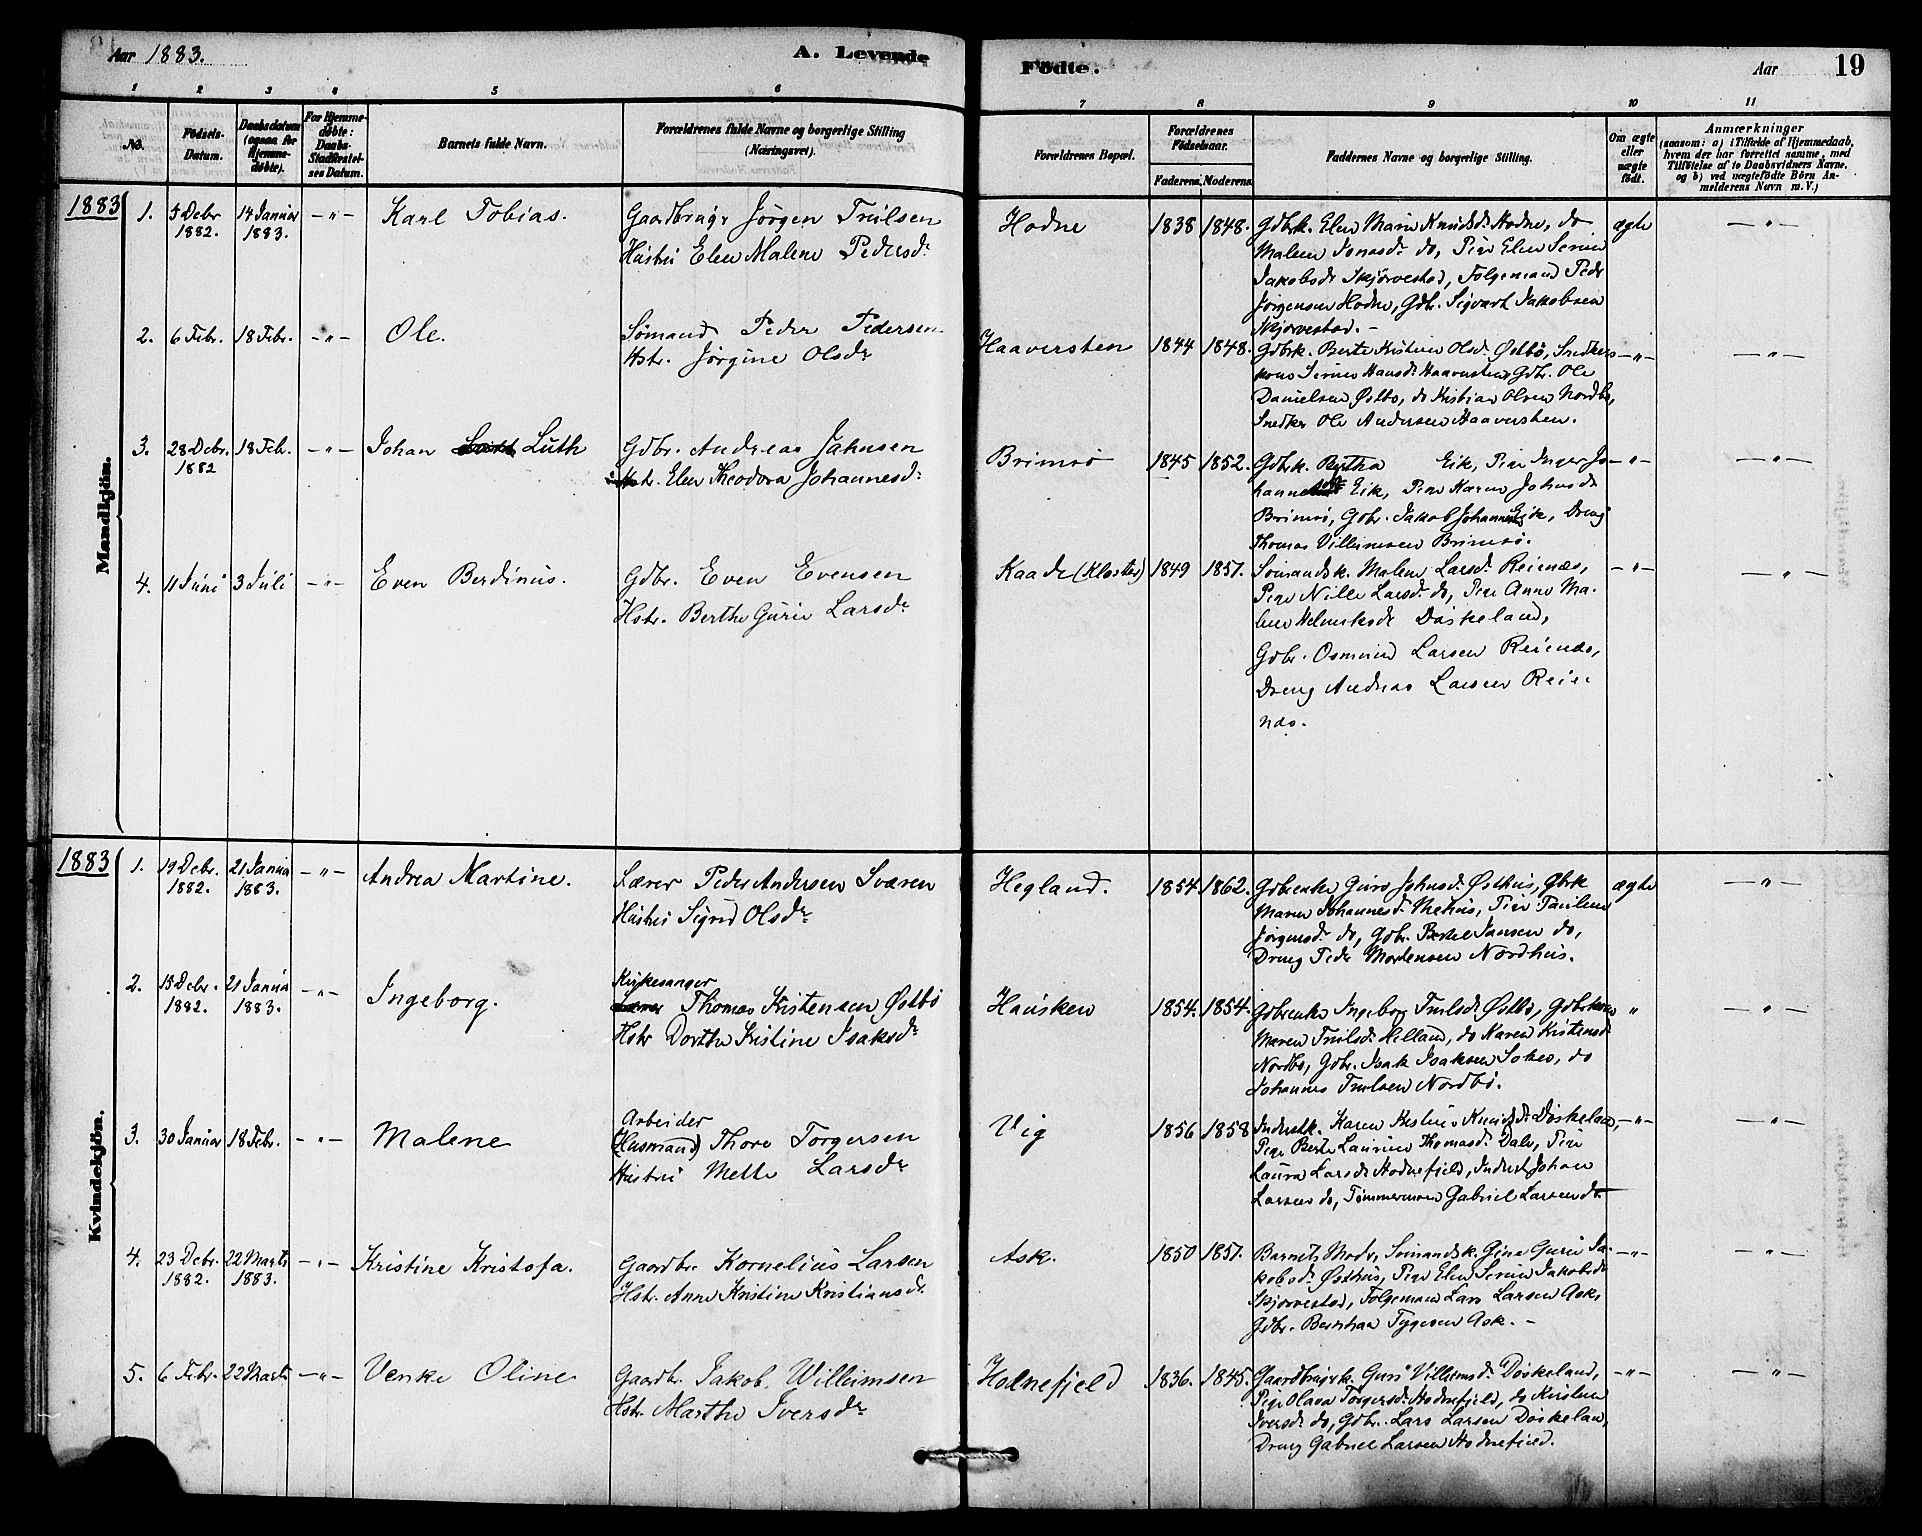 Aar 1883.
A. Levende
Födte.
Aar
19
1
2
3
4
5
6
7
8
9
10
11
No.
Födsels-
Datum.
Daabsdatum
(ogsaa for
Hjemme-
döbte).
For Hjemme-
döbte:
Daabs-
Stadfæstel-
ses Datum.
Barnets fulde Navn.
Forældrenes fulde Navne og borgerlige Stilling
(Næringsvei).
Forældrenes Bopæl.
Forældrenes
Födselsaar.
Faderens.
Moderens.
Faddernes Navne og borgerlige Stilling.
Om ægte
eller
uægte
født.
Anmærkninger
(saasom: a) i Tilfælde af Hjemmedaab,
hvem der har forrettet samme, med
Tilföielse af to Daabsvidners Navne,
og b) ved uægtefödte Börn An-
melderens Navn m. V.)
Mandkjön.
1883
1.
5 Debr
1882.
14 Januar
1883.
– " –
Karl Tobias.
Gaardbruger Jörgen Truilsen
Hustru Elen Malene Pedersdr
Hodne
1838
1848.
Gdbrk. Elen Marie Knudsdr Hodne, do
Malene Jonasdr do, Pige Elen Serine
Jakobsdr Skjørvestad, Følgemand Peder
Jörgensen Hodne, Gdbr. Sigvart Jakobsen
Skjørvestad. –
ægte
– " –
2.
6 Febr.
18 Febr.
– " –
Ole.
Sømand Peder Pedersen
Hstr. Jörgine Olsdr
Haaversten
1844
1848.
Gdbrk. Berte Kristine Olsdr Østbö, Snedker-
kone Serine Hansdr Haaversten, Gdbr. Ole
Danielsen Østbö, do Kristian Olsen Nordbö,
Snedker Ole Andersen Haaversten.
– " –
– " –
3.
28 Debr.
1882
18 Febr.
– " –
Johan Luth
Gdbr. Andreas Jahnsen
Hstr. Elen Theodora Johannesdr
Brimsö
1845
1852.
Gdbrk. Bertha Eik, Pige Inger Jo-
hannesdr Eik, Pige Karen Johnsdr
Brimsö, Gdbr. Jakob Johannes Eik, Dreng
Thomas Villumsen Brimsö.
– " –
– " –
4.
11 Juni
3 Juli
– " –
Even Berdinus.
Gdbr. Even Evensen
Hstr. Berthe Gurie Larsdr
Kaade (Kloster)
1849
1857.
Sömandsk. Malene Larsdr Reienæs,
Pige Nille Larsdr do, Pige Anne Ma-
lene Helmiksdr Döskeland,
Gdbr. Osmund Larsen Reienæs,
Dreng Andreas Larsen Reie-
næs.
– " –
– " –
Kvindekjön.
1883
1.
19 Debr.
1882.
21 Januar
1883.
– " –
Andrea Martine.
Lærer Peder Andersen Sværen
Hustru Sigrid Olsdr
Hegland.
1854.
1862.
Gdbrenke Guro Johnsdr Østhus, Gbrk
Maren Johannesdr Mehus, Pige Pauline
Jörgensdr do, Gdbr. Bertel Jansen do,
Dreng Peder Mortensen Nordhus.
ægte
– " –
2.
15 Debr.
1882.
21 Januar
1883.
– " –
Ingeborg.
Kirkesanger
Thomas Kristensen Østbö
Hstr Dorthe Kristine Isaksdr
Hausken
1854.
1854.
Gdbrenke Ingeborg Truilsdr Østbö, Gdbrkone
Maren Truilsdr Helland, do Maren Kristensdr
Nordbö, Gdbr. Isak Isaksen Sokn, do
Johannes Truilsen Nordbö.
"
– " –
3.
30 Januar
18 Febr.
– " –
Malene
Arbeider
(Husmand) Thore Torgersen
Hustru Mette Larsdr
Vig
1856
1858
Inderstk. Karen Kristine Knudsdr Döskeland,
Pige Berte Laurine Thomasdr Dale, Pige
Laura Larsdr Hodnefjeld, Inderst Johan
Larsen do, Tømmermand Gabriel Larsen do
– " –
– " –
4.
23 Debr.
1882.
22 Marts
1883.
– " –
Kristine Kristofa.
Gaardbr. Kornelius Larsen
Hstr. Anne Kristine Kristiansdr
Ask.
1850
1857.
Barnets Moder, Sömandsk. Gina Gurie Ja-
kobsdr Østhus, Pige Elen Serine Jakobsdr
Skjørvestad, Følgemand Lars Larsen Ask,
Gdbr. Berthaa Tygesen Ask. –
– " –
– " –
5.
6 Febr.
22 Marts
– " –
Venke Oline
Gaardbr. Jakob Willumsen
Hstr. Marthe Iversdr
Hodnefjeld
1836.
1845.
Gaardbrugrk. Guri Villumsdr Döskeland,
Pige Olava Torgersdr Hodnefjeld, do Kirstine
Iversdr do, Gdbr. Lars Larsen Döskeland,
Dreng Gabriel Larsen Hodnefjeld.
– " –
– " –